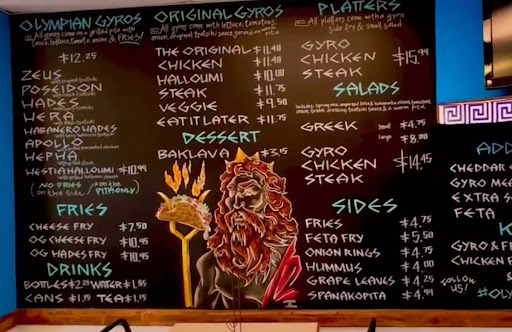 OLYMPIAN GYROS
All gyros come on a grilled pita with
sauce, lettuce, tomato, onion & FRIES!
$12.25
ZEUS
with original tzatziki
POSEIDON
HADES
HERA
HABANERO HADES
APOLLO
HEPHA
HESTIA HALLOUMI $10.99
(NO FRIES / on the
on the side / PITA ONLY)
FRIES
CHEESE FRY $7.50
OG CHEESE FRY $10.95
OG HADES FRY $10.95
DRINKS
BOTTLES $2.25 WATER $1.85
CANS $1.75 TEA $1.75
ORIGINAL GYROS
All gyros come with lettuce, tomatoes,
onion, original tzatziki sauce, served on warm
pita
THE ORIGINAL $11.40
CHICKEN $11.40
HALLOUMI $10.00
STEAK $11.75
VEGGIE $9.50
EAT IT LATER $11.75
DESSERT
BAKLAVA $3.15
PLATTERS
All platters come with a gyro
side, fry & small salad
GYRO
CHICKEN $15.99
STEAK
SALADS
GREEK Small $4.75
Large $8.00
GYRO
CHICKEN $14.45
STEAK
SIDES
FRIES $4.75
FETA FRY $5.50
ONION RINGS $4.75
HUMMUS $4.00
GRAPE LEAVES $4.25
SPANAKOPITA $4.
ADD
CHEDDAR
GYRO ME
EXTRA S
FETA
K
GYRO & F
CHICKEN F
FOLLOW
US!
#OLY